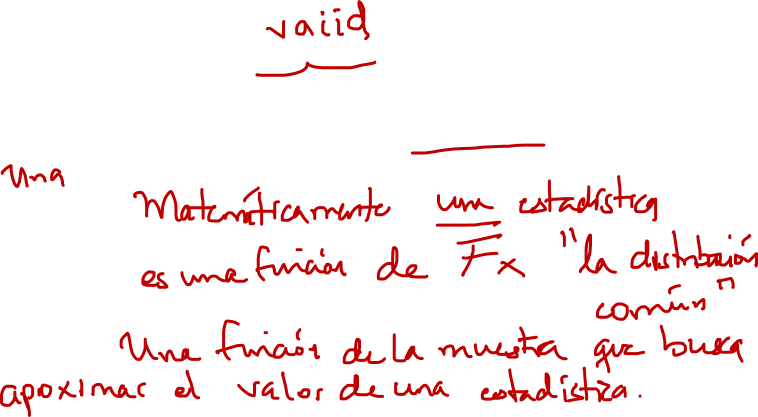 vaiid
Una
Matemáticamente una estadística
es una función de Fx "la distribución
común"
Una función de la muestra que busca
apoximar el valor de una estadística.